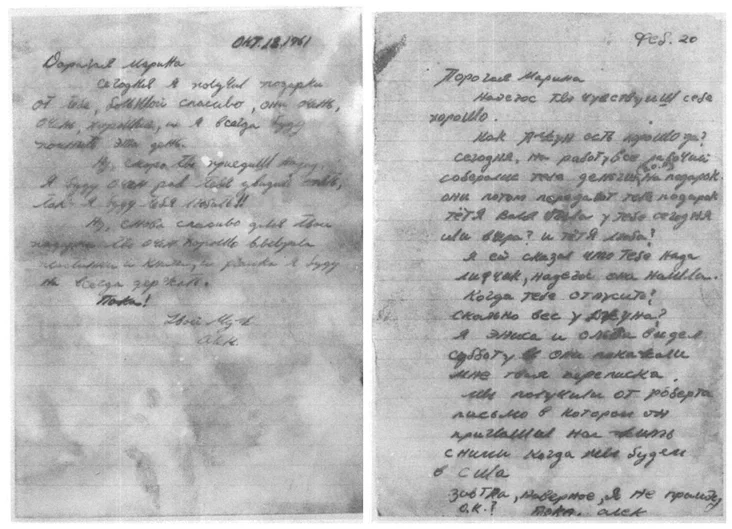 ОКТ. 18. 1961
Дарагая Марина
сегодня я получил подарки
от тебя, большой спасибо, они очень,
очень, хорошие, и я всегда буду
помнить это день.
Ну, скоро ты приедиш
Я буду очен рад тебя увидит
Ну, снова спасибо для твои
подарки ты очен хорошо выбрала
и я буду
на всегда держать.
Пока!
Твой Муж
Алик
Фев. 20
Дорогая Марина
Надеюс ты чувствуиш себе
хорошо.
Как Джун есть хорошо да?
сегодня, на работу все рабочий
соберались тебе деньги на подарок.
они потом передают тебе подарок
тётя Валя была у тебе сегодня
или вчера? и тётя люба?
Я ей сказал что тебе нада
лифчик, надеюс она нашла.
Когда тебе отпусите?
сколько вес у Джуна?
я Эриха и олва видел
субботу и они показали
мне твоя переписка.
мы получили от роберта
письмо в котором он
пригашил нас жить
с ними когда мы будем
в США
завтра, наверное, я не прийду
О.К.? Пока. Алек